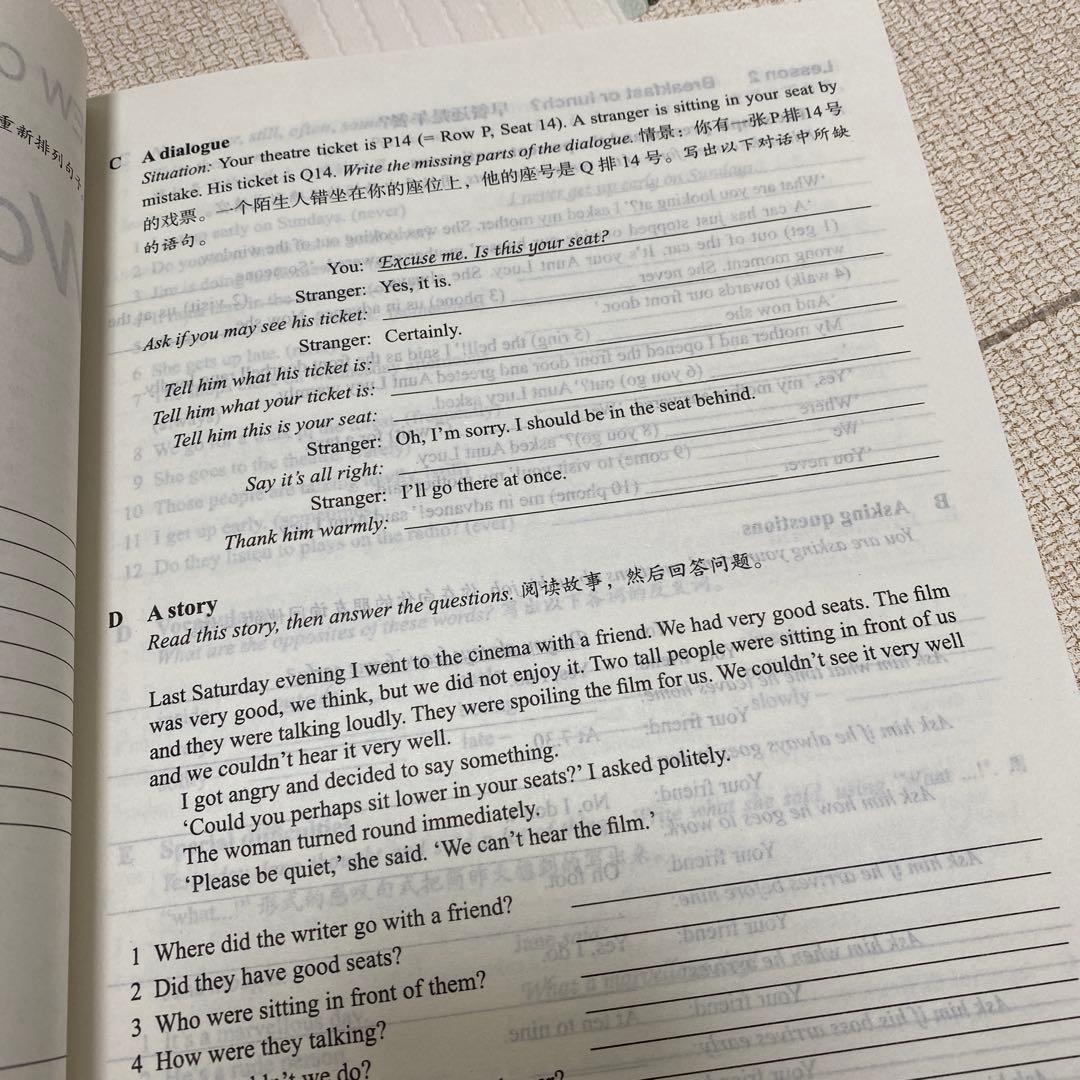 重新排列句子
C A dialogue
Situation: Your theatre ticket is P14 (= Row P, Seat 14). A stranger is sitting in your seat by
mistake. His ticket is Q14. Write the missing parts of the dialogue. 情景：你有一张P排14号
的戏票。一个陌生人错坐在你的座位上，他的座号是Q排14号。写出以下对话中所缺
的语句。
You: Excuse me. Is this your seat?
Stranger: Yes, it is.
Ask if you may see his ticket:
Stranger: Certainly.
Tell him what his ticket is:
Tell him what your ticket is:
Tell him this is your seat:
Stranger: Oh, I'm sorry. I should be in the seat behind.
Say it's all right:
Stranger: I'll go there at once.
Thank him warmly:
D A story
Read this story, then answer the questions. 阅读故事，然后回答问题。
Last Saturday evening I went to the cinema with a friend. We had very good seats. The film
was very good, we think, but we did not enjoy it. Two tall people were sitting in front of us
and they were talking loudly. They were spoiling the film for us. We couldn't see it very well
and we couldn't hear it very well.
I got angry and decided to say something.
‘Could you perhaps sit lower in your seats?’ I asked politely.
The woman turned round immediately.
‘Please be quiet,’ she said. ‘We can't hear the film.’
1 Where did the writer go with a friend?
2 Did they have good seats?
3 Who were sitting in front of them?
4 How were they talking?
we do?